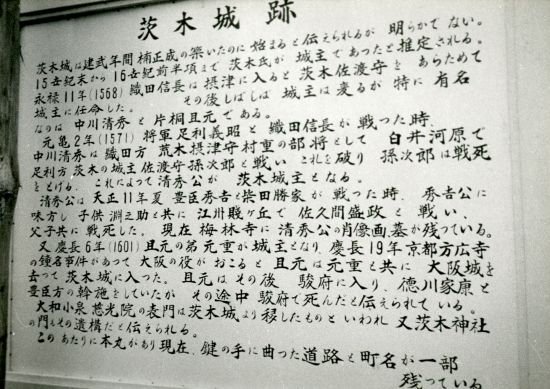 茨木城跡
茨木城は建武年間楠正成の築いたのに始まると伝えられるが 明らかでない。
15世紀末から16世紀前半頃まで茨木氏が 城主であったと推定される。
永禄11年(1568)織田信長は摂津に入ると茨木佐渡守を あらためて
城主に任命した。 その後しばしば 城主は変るが 特に 有名
なのは 中川清秀と片桐且元である。
元亀2年(1571)将軍足利義昭と 織田信長が 戦った時、
中川清秀は織田方 荒木摂津守村重の部将として 白井河原で
足利方茨木の城主佐渡守孫次郎と戦い これを破り 孫次郎は戦死
をとげる。これによって清秀公が 茨木城主となる。
清秀公は天正11年夏 豊臣秀吉と柴田勝家が 戦った時、秀吉公に
味方し 子供 淵之助と共に 江州賤ヶ丘で 佐久間盛政と 戦い、
父子共に戦死した。現在梅林寺に清秀公の肖像画、墓が残っている。
又慶長6年(1601)且元の弟元重が城主となり、慶長19年京都方広寺
の鐘名事件があって 大阪の役が おこると 且元は元重と共に 大阪城を
去って茨木城に入った。且元はその後 駿府に入り、徳川家康と
豊臣方の斡施をしていたが その途中 駿府で死んだと伝えられて いる。
大和小泉慈光院の表門は茨木城より移したものといわれ 又茨木神社
の門もその遺構だと伝えられる。
このあたりに本丸があり現在、鍵の手に曲った道路と町名が一部
残っている